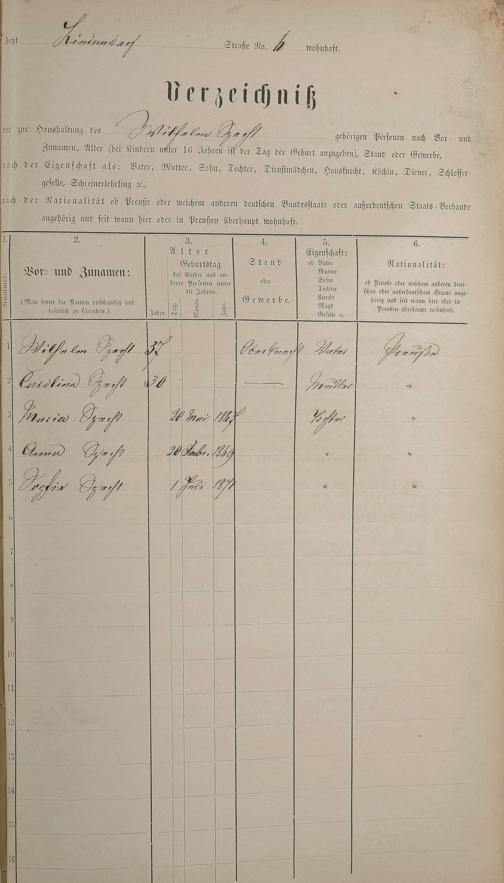 Jetzt Straße No. 6 wohnhaft.
Verzeichniß
der zur Haushaltung des Wilhelm Specht gehörigen Personen nach Vor- und
Zunamen, Alter (bei Kindern unter 16 Jahren ist der Tag der Geburt anzugeben), Stand oder Gewerbe,
nach der Eigenschaft als: Vater, Mutter, Sohn, Tochter, Dienstmädchen, Hausknecht, Köchin, Diener, Schlosser-
geselle, Schreinerlehrling ꝛc.,
nach der Nationalität ob Preuße oder welchem anderen deutschen Bundesstaate oder außerdeutschen Staats-Verbande
angehörig und seit wann hier oder in Preußen überhaupt wohnhaft.
1.
Nummer.
2.
Vor- und Zunamen:
(Man bittet die Namen vollständig und
leserlich zu schreiben.)
3.
Alter
Geburtstag
der Kinder und an-
derer Personen unter
16 Jahren.
Jahre. Tag. Monat. Jahr.
4.
Stand
oder
Gewerbe.
5.
Eigenschaft:
ob Vater
Mutter
Sohn
Tochter
Knecht
Magd
Geselle u.
6.
Nationalität:
ob Preuße oder welchem anderen deut-
schen oder außerdeutschen Staate ange-
hörig und seit wann hier oder in
Preußen überhaupt wohnhaft.
1 Wilhelm Specht 37 Vater Preuße
2 Carolina Specht 30 — Mutter "
3 Maria Specht 20 Mai 1867 Tochter "
4 Anna Specht 20 Febr. 1869 " "
5 Sophie Specht 1 Juli 1871 " "
6
7
8
9
10
11
12
13
14
15
16